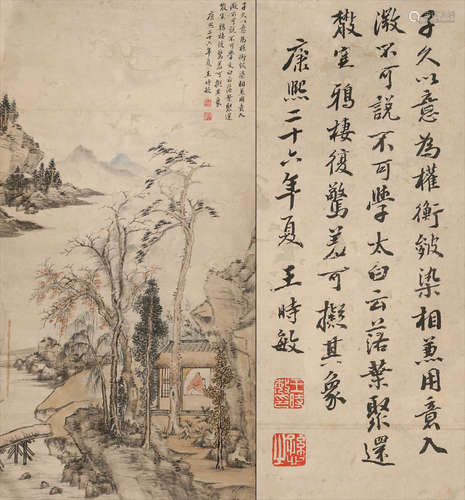 子久以意為權衡皴染相兼用意入
微不可說不可學太白云落葉聚還
散寒鴉棲復驚差可擬其象
康熙二十六年夏王時敏
子久以意為權衡皴染相兼用意入
微不可說不可學太白云落葉聚還
散寒鴉棲復驚差可擬其象
康熙二十六年夏王時敏